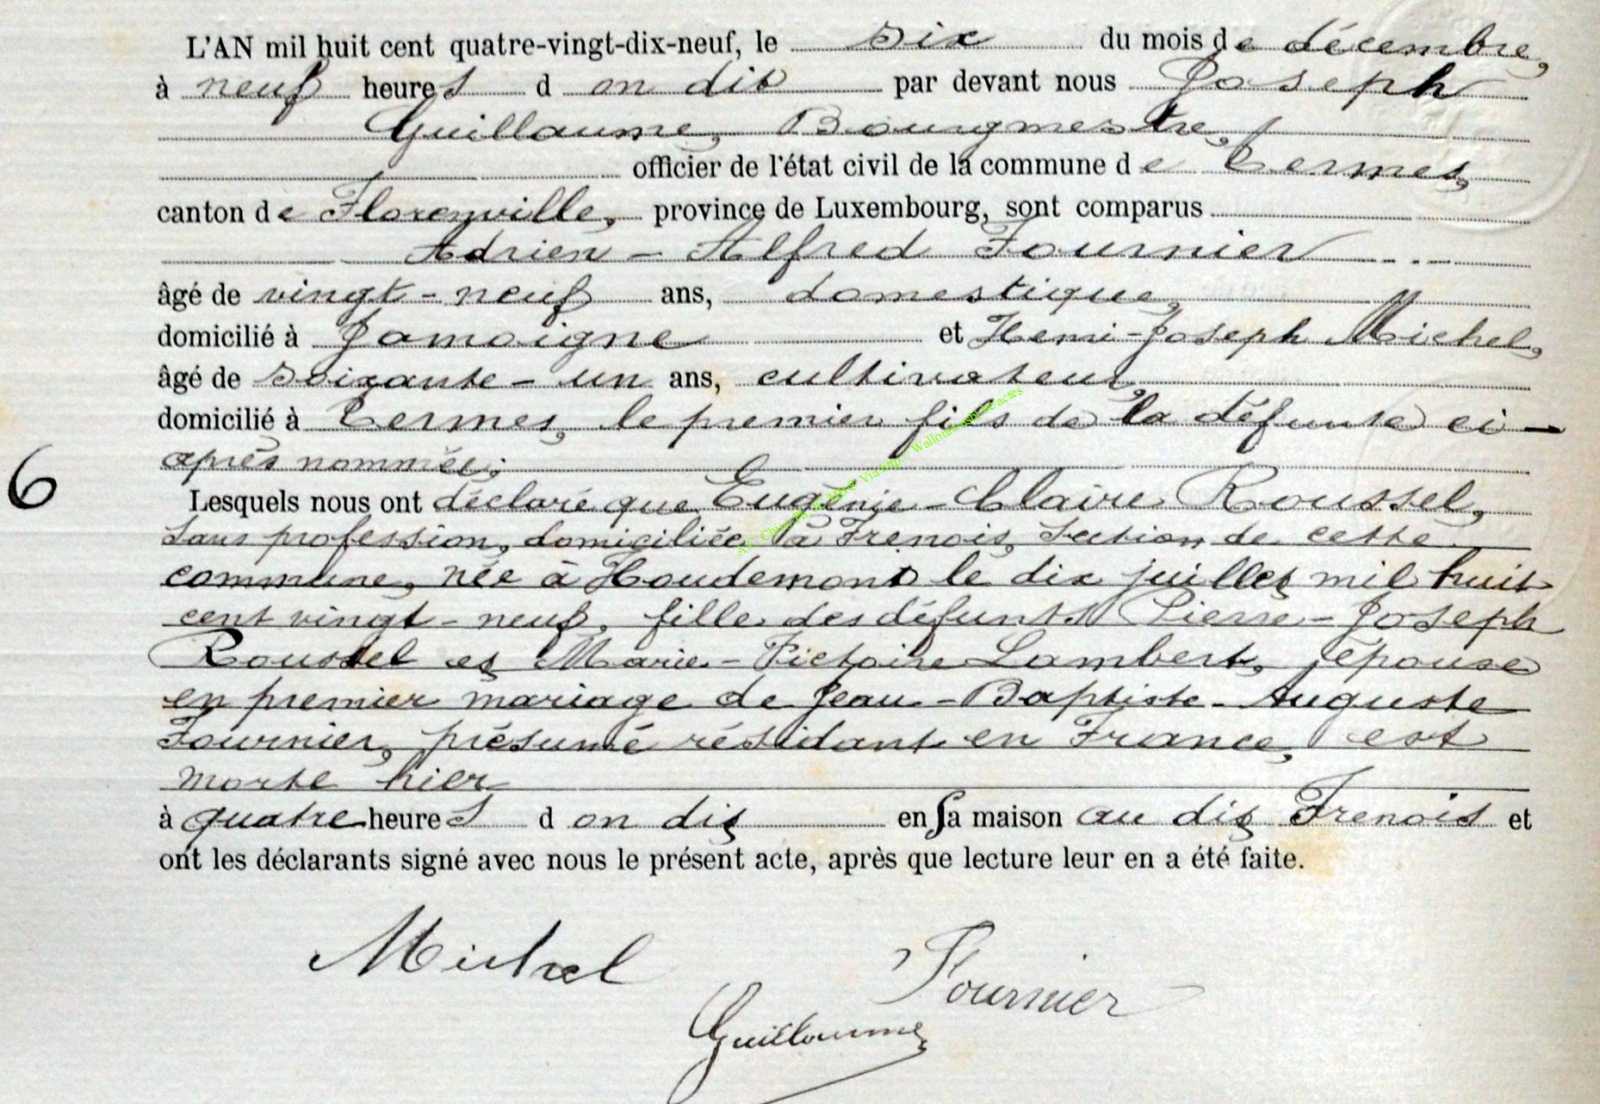 L'AN mil huit cent quatre-vingt-dix-neuf, le six du mois de décembre,
à neuf heures d on dit par devant nous Joseph
Guillaume, Bourgmestre,
officier de l'état civil de la commune de Termes,
canton de Florenville, province de Luxembourg, sont comparus
Adrien - Alfred Fournier
âgé de vingt-neuf ans, domestique,
domicilié à Jamoigne et Henri-Joseph Michel,
âgé de soixante-un ans, cultivateur,
domicilié à Termes, le premier fils de la défunte ci-
après nommée;
6
Lesquels nous ont déclaré que Eugénie-Claire Roussel,
sans profession, domiciliée à Frenois, section de cette
commune, née à Houdemont le dix juillet mil huit
cent vingt-neuf, fille des défunts Pierre-Joseph
Roussel et Marie-Victoire Lambert, épouse
en premier mariage de Jean-Baptiste-Auguste
Fournier, présumé résidant en France, est
morte hier
à quatre heures d on dit en sa maison au dit Frenois et
ont les déclarants signé avec nous le présent acte, après que lecture leur en a été faite.
Michel
Fournier
Guillaume